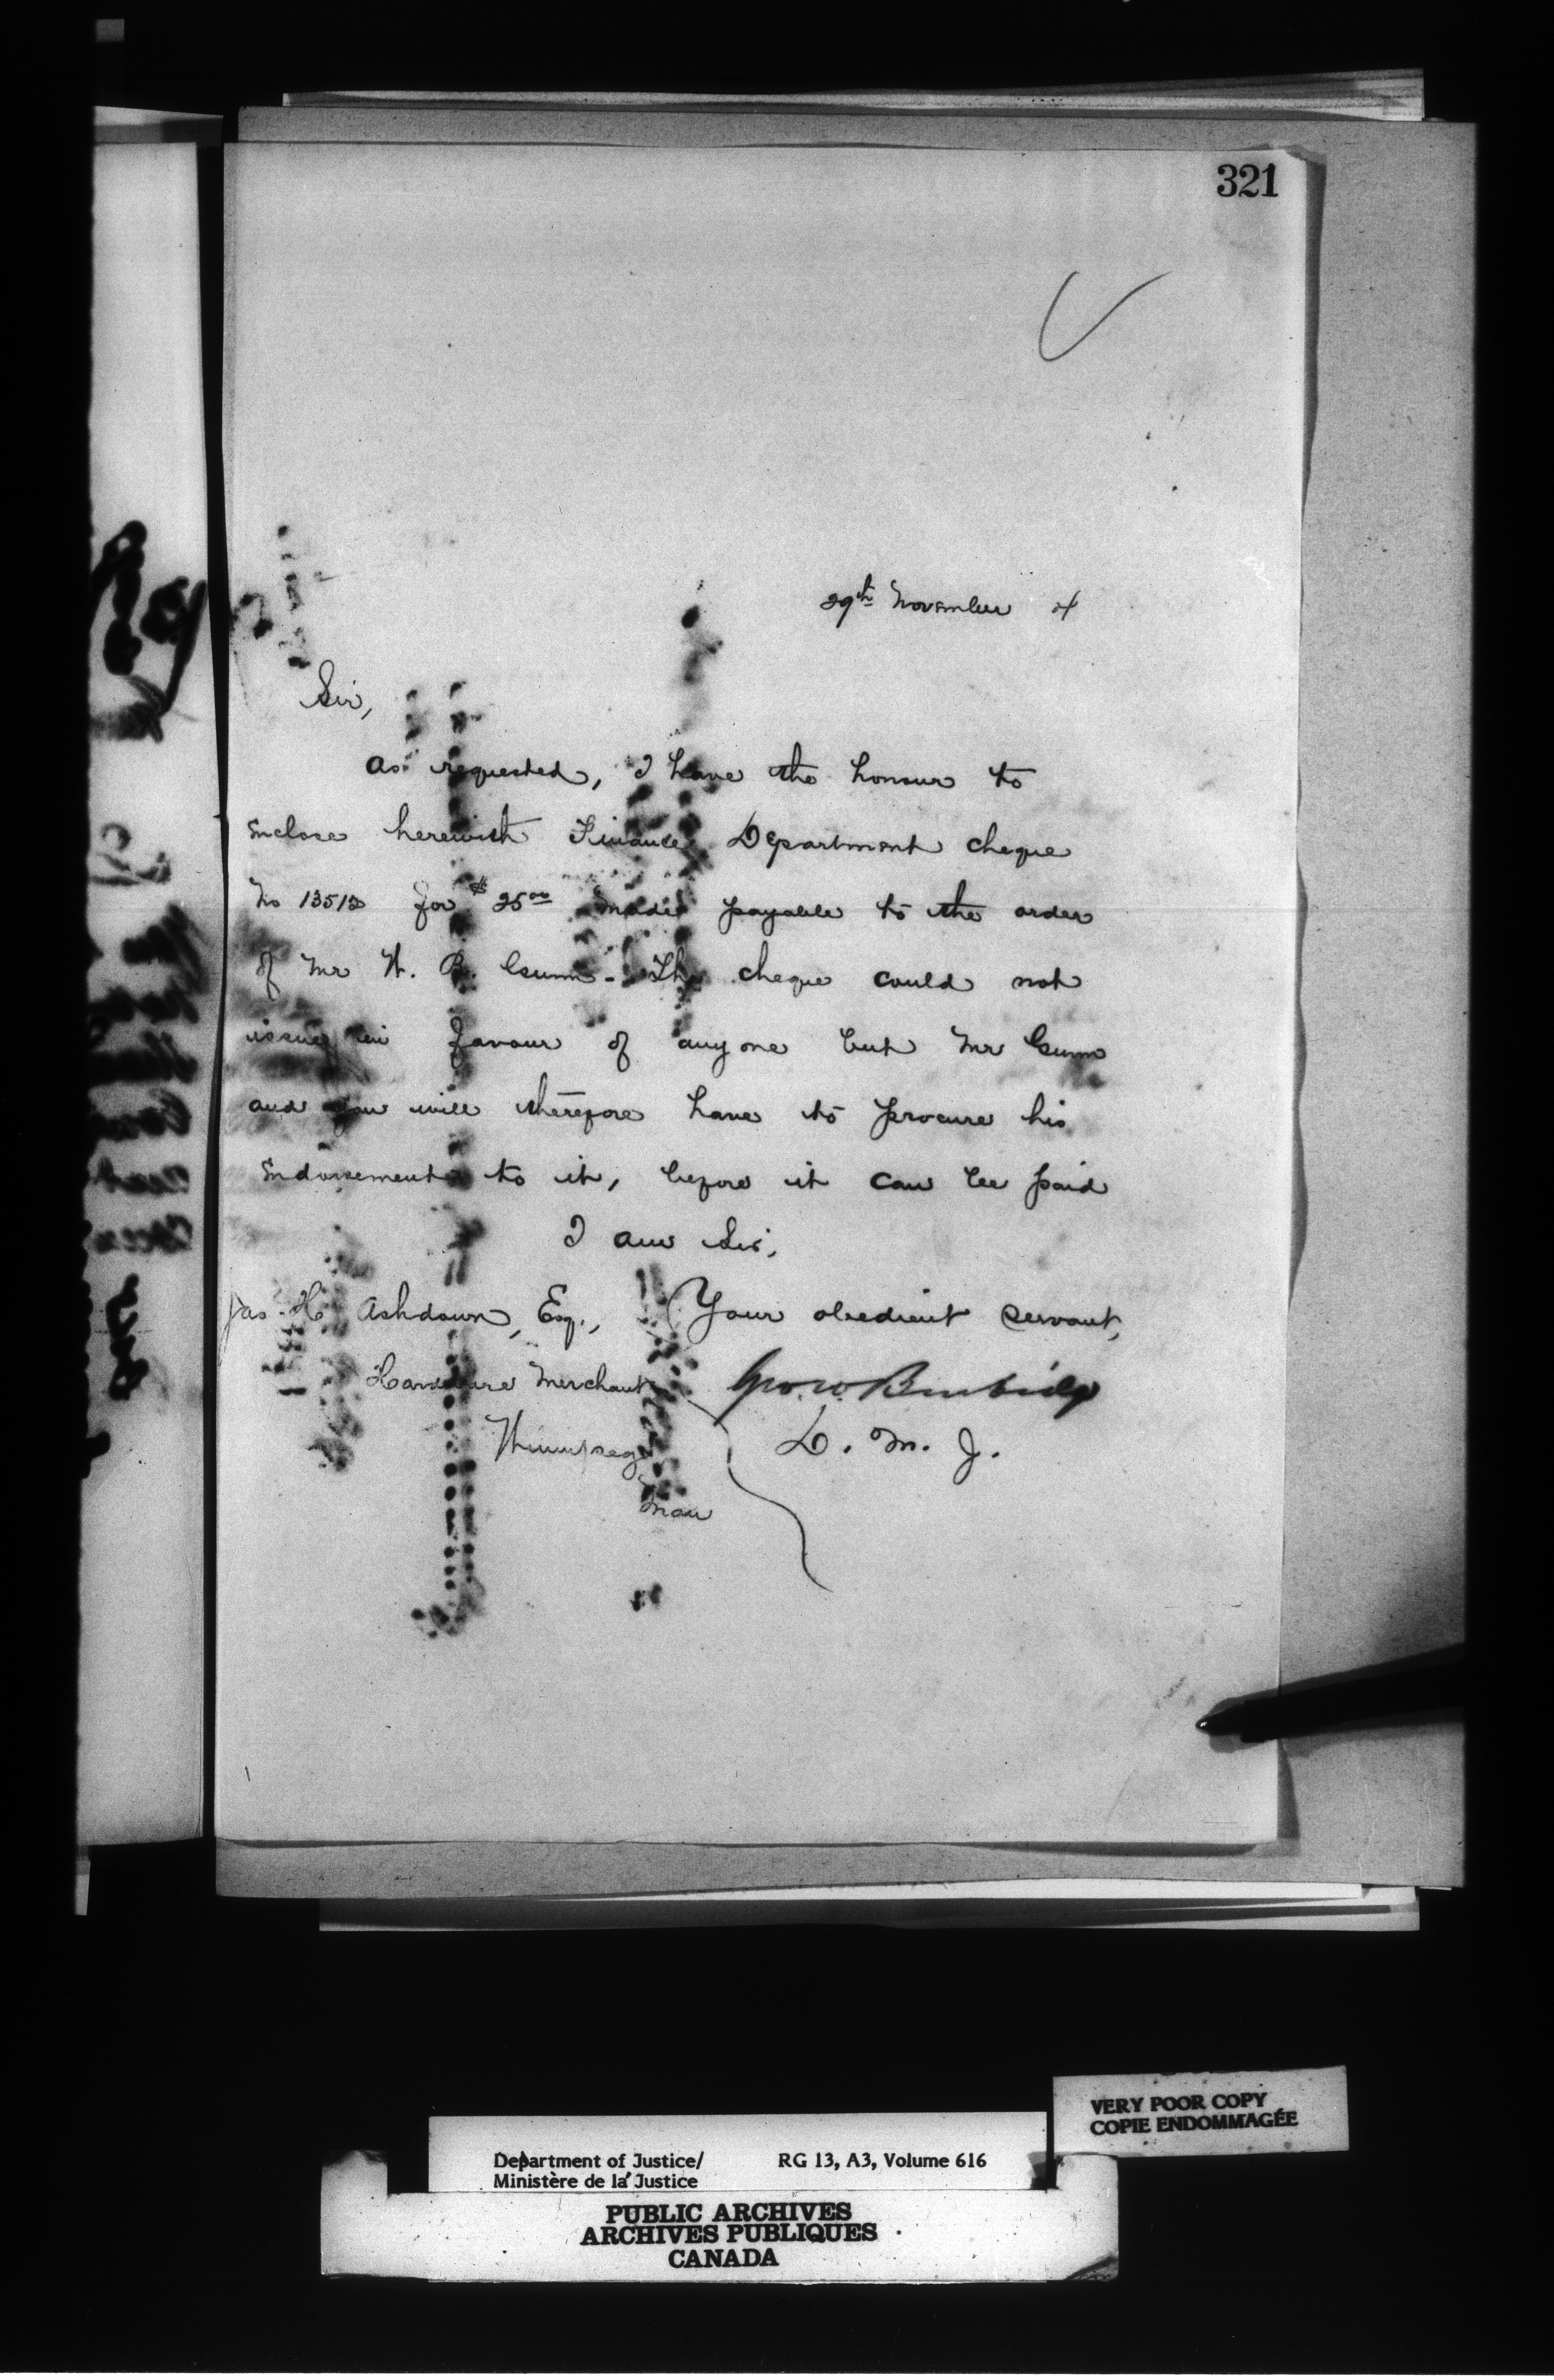 321
29th November 4
Sir,
As requested, I have the honour to
enclose herewith Finance Department cheque
No 13513 for $25.00 made payable to the order
of Mr W. B. Gunn. The cheque could not
issue in favour of any one but Mr Gunn
and you will therefore have to procure his
endorsement to it, before it can be paid
I am Sir,
Your obedient servant,
Geo. W. Burbidge
D. M. J.
Jas. H. Ashdown, Esq.,
Hardware Merchant
Winnipeg
Man
VERY POOR COPY
COPIE ENDOMMAGÉE
Department of Justice/ RG 13, A3, Volume 616
Ministère de la Justice
PUBLIC ARCHIVES
ARCHIVES PUBLIQUES
CANADA